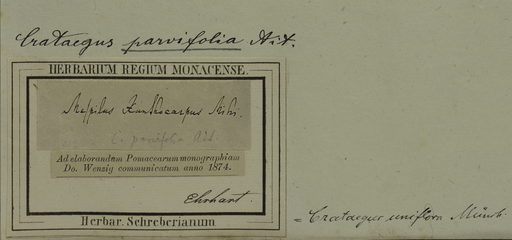 Crataegus parvifolia Ait.
HERBARIUM REGIUM MONACENSE.
Mespilus Xanthocarpus
C. parvifolia Ait.
Ad elaborandam Pomacearum monographiam
Do. Wenzig communicatum anno 1874.
Ehrhart.
Herbar. Schreberianum
= Crataegus uniflora Münch.